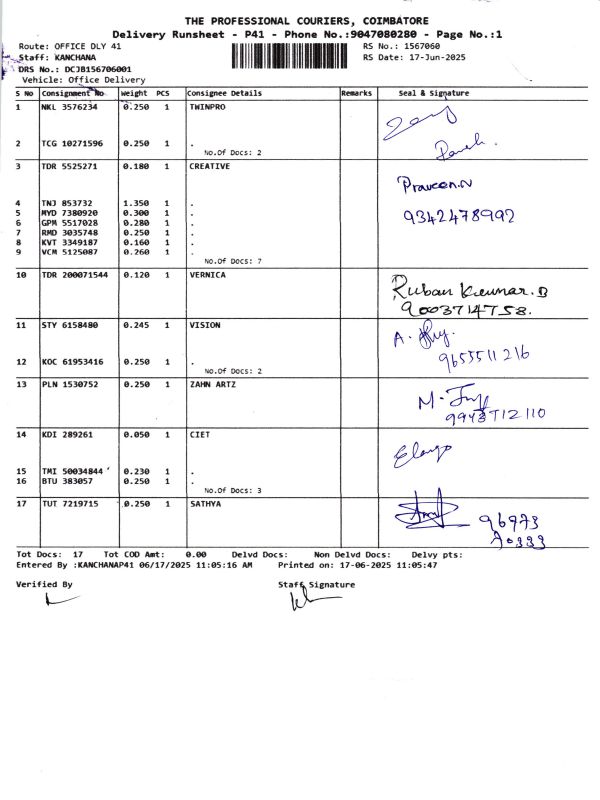 THE PROFESSIONAL COURIERS, COIMBATORE
Delivery Runsheet - P41 - Phone No.:9047080280 - Page No.:1
Route: OFFICE DLY 41 RS No.: 1567060
Staff: KANCHANA RS Date: 17-Jun-2025
DRS No.: DCJB156706001
Vehicle: Office Delivery
S No Consignment No Weight PCS Consignee Details Remarks Seal & Signature
1 NKL 3576234 0.250 1 TWINPRO
2 TCG 10271596 0.250 1 .
No.Of Docs: 2
3 TDR 5525271 0.180 1 CREATIVE
Praveen.N
4 TNJ 853732 1.350 1 .
5 MYD 7380920 0.300 1 . 9342478992
6 GPM 5517028 0.280 1 .
7 RMD 3035748 0.250 1 .
8 KVT 3349187 0.160 1 .
9 VCM 5125087 0.260 1 .
No.Of Docs: 7
10 TDR 200071544 0.120 1 VERNICA
Ruban Kumar. B
9003714758.
11 STY 6158480 0.245 1 VISION
A.
9655511216
12 KOC 61953416 0.250 1 .
No.Of Docs: 2
13 PLN 1530752 0.250 1 ZAHN ARTZ
M.
9943712110
14 KDI 289261 0.050 1 CIET
15 TMI 50034844 0.230 1 .
16 BTU 383057 0.250 1 .
No.Of Docs: 3
17 TUT 7219715 0.250 1 SATHYA
96973
Tot Docs: 17 Tot COD Amt: 0.00 Delvd Docs: Non Delvd Docs: Delvy pts:
Entered By :KANCHANAP41 06/17/2025 11:05:16 AM Printed on: 17-06-2025 11:05:47
Verified By Staff Signature